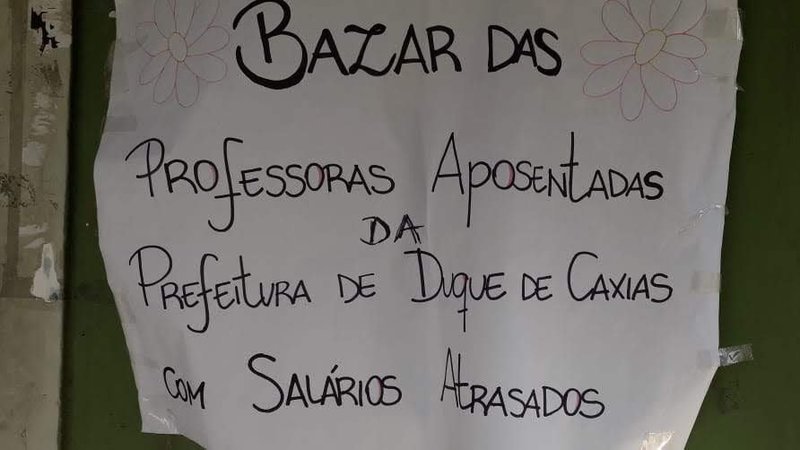 BAZAR DAS
PROFESSORAS APOSENTADAS
DA
PREFEITURA DE DUQUE DE CAXIAS
COM SALÁRIOS ATRASADOS